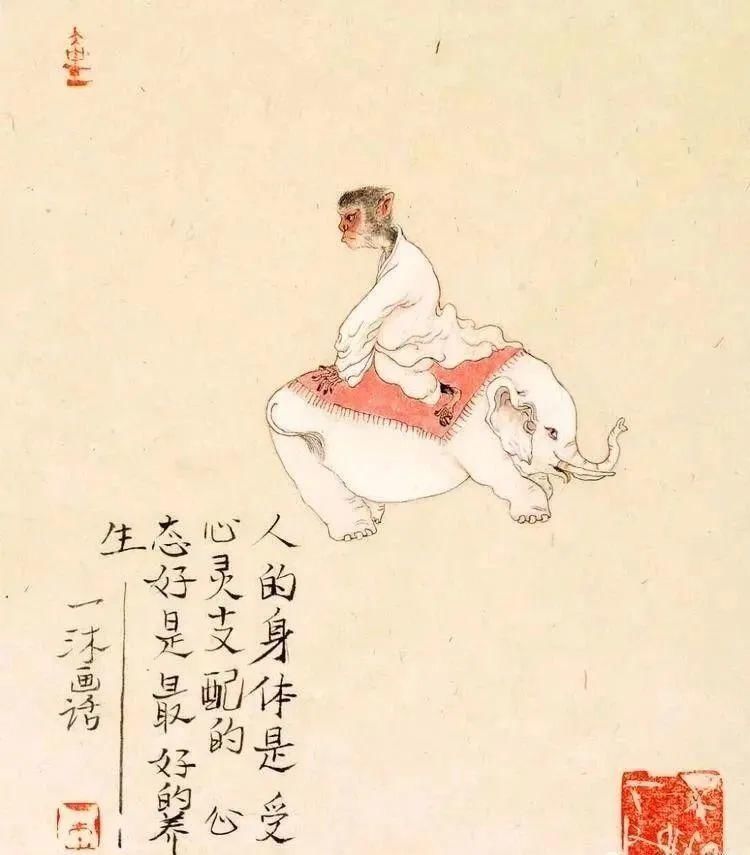 人的身体是受
心灵支配的 心
态好是最好的养
生
一沐画话